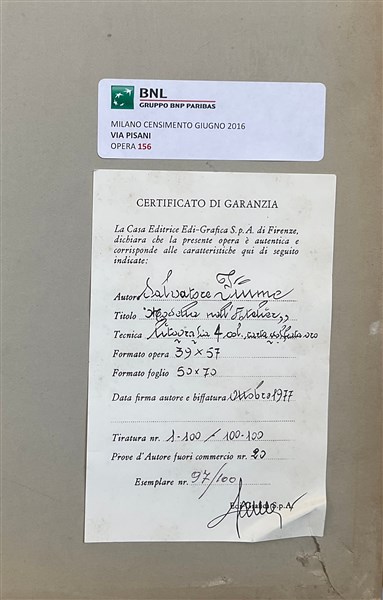 BNL
GRUPPO BNP PARIBAS
MILANO CENSIMENTO GIUGNO 2016
VIA PISANI
OPERA 156
CERTIFICATO DI GARANZIA
La Casa Editrice Edi-Grafica S.p.A. di Firenze,
dichiara che la presente opera è autentica e
corrisponde alle caratteristiche qui di seguito
indicate:
Autore Salvatore Fiume
Titolo "Modella nell'Atelier"
Tecnica litografia 4 col. carta oro
Formato opera 39 x 57
Formato foglio 50 x 70
Data firma autore e biffatura ottobre 1977
Tiratura nr. 1-100 / 100-100
Prove d'Autore fuori commercio nr. 20
Esemplare nr. 97/100
S.p.A.